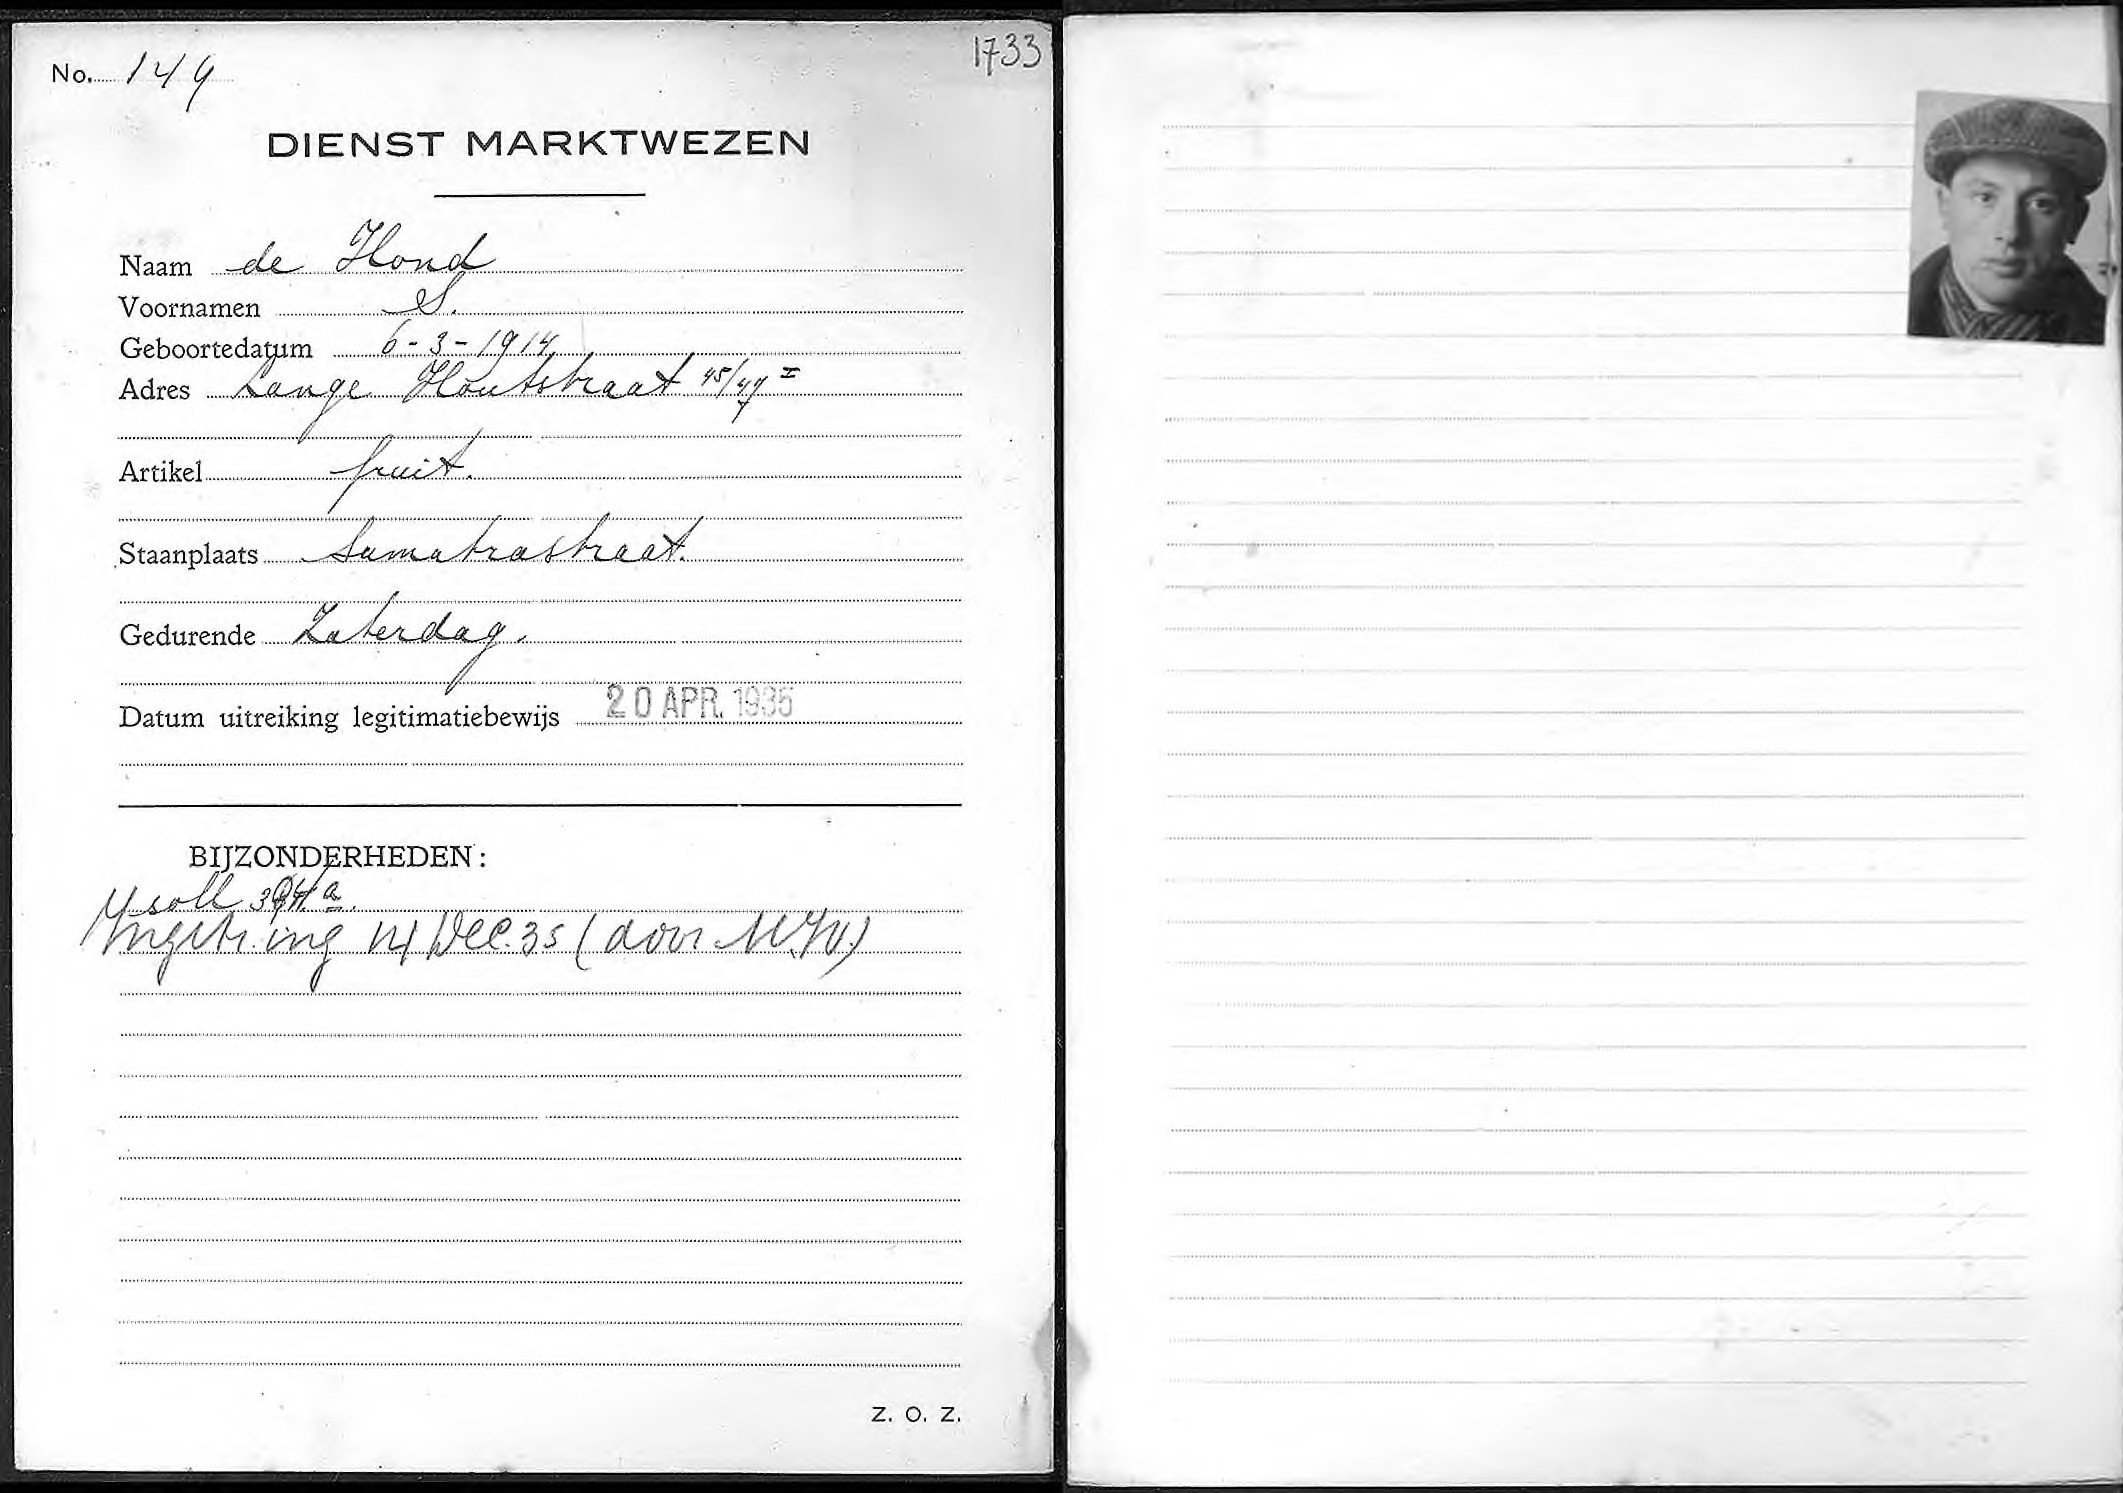 No. 149
1733
DIENST MARKTWEZEN
Naam de Hond
Voornamen S.
Geboortedatum 6-3-1914
Adres Lange Houtstraat 45/47 I
Artikel fruit.
Staanplaats Sumatrastraat.
Gedurende Zaterdag.
Datum uitreiking legitimatiebewijs 20 APR. 1935
BIJZONDERHEDEN:
soll
ing 14 Dec. 35 (door
Z. O. Z.